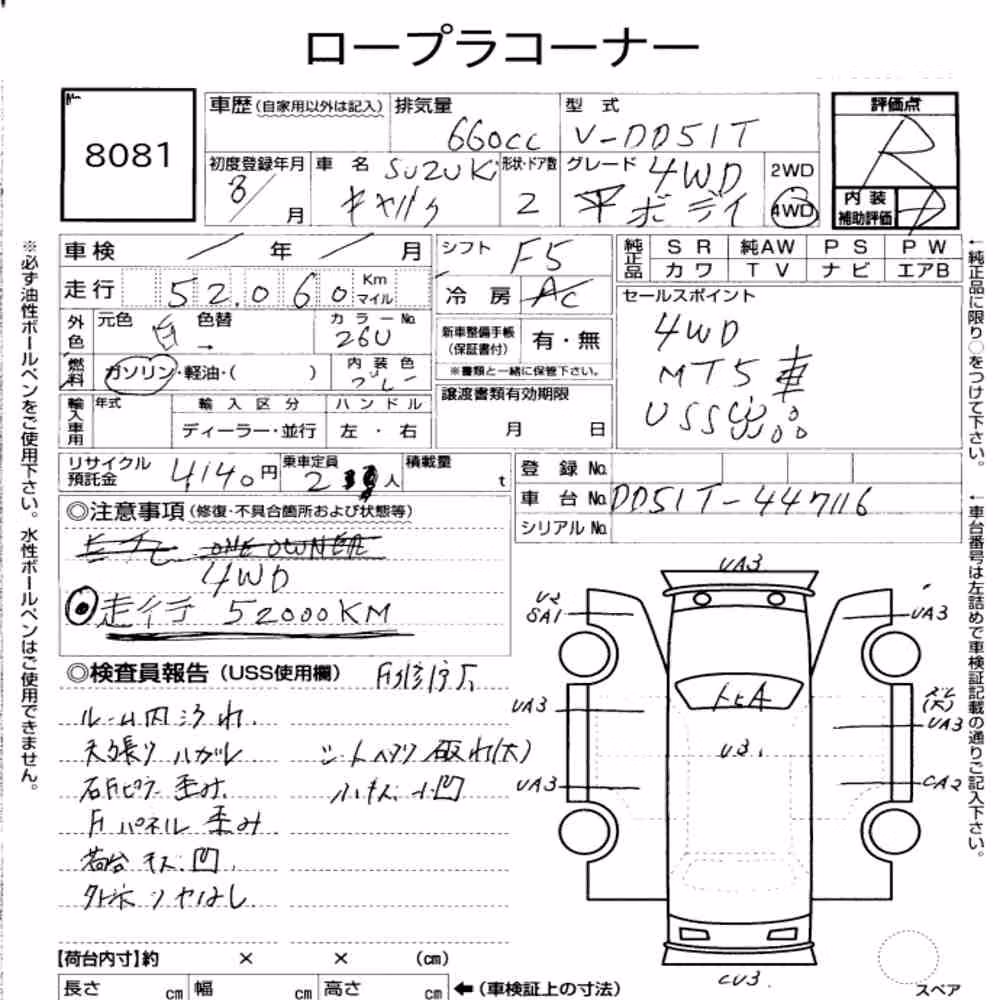 ロープラコーナー
8081
車歴(自家用以外は記入)
排気量
660cc
型 式
V-DD51T
評価点
R
初度登録年月
3/
月
車 名
SUZUKI
キャリィ
形状・ドア数
2
グレード
4WD
平ボディ
2WD
4WD
内 装
補助評価
D
車検 / 年 / 月
シフト
F5
純正品
SR 純AW PS PW
カワ TV ナビ エアB
走行
52.060
Km
マイル
冷 房
AC
セールスポイント
4WD
MT5車
USS
外色
元色 白 色替
→
カラーNo.
26U
新車整備手帳
(保証書付)
有・無
燃料
ガソリン・軽油・( )
内 装 色
グレー
※書類と一緒に保管下さい。
輸入車用
年式
輸 入 区 分
ハ ン ド ル
ディーラー・並行
左 ・ 右
譲渡書類有効期限
月 日
リサイクル
預託金
4140円
乗車定員
2
人
積載量
t
登 録 No.
車 台 No.
DD51T-447116
シリアル No.
◎注意事項(修復・不具合箇所および状態等)
ONE OWNER
4WD
走行 52000KM
◎検査員報告(USS使用欄)
ルーム内汚れ.
天張りハガレ
シートヘタリ 破れ(大)
右Fピラー歪み.
小キズ 小凹
Fパネル 歪み
荷台 キズ.凹.
【荷台内寸】約 × × (cm)
長さ cm
幅 cm
高さ cm
←(車検証上の寸法)
スペア
UA3
U2
SA1
UA3
UA3
UA3
UA3
CA2
トビA
U3.
CU3
※必ず油性ボールペンをご使用下さい。水性ボールペンはご使用できません。
←純正品に限り○をつけて下さい。
←車台番号は左詰めで車検証記載の通りご記入下さい。